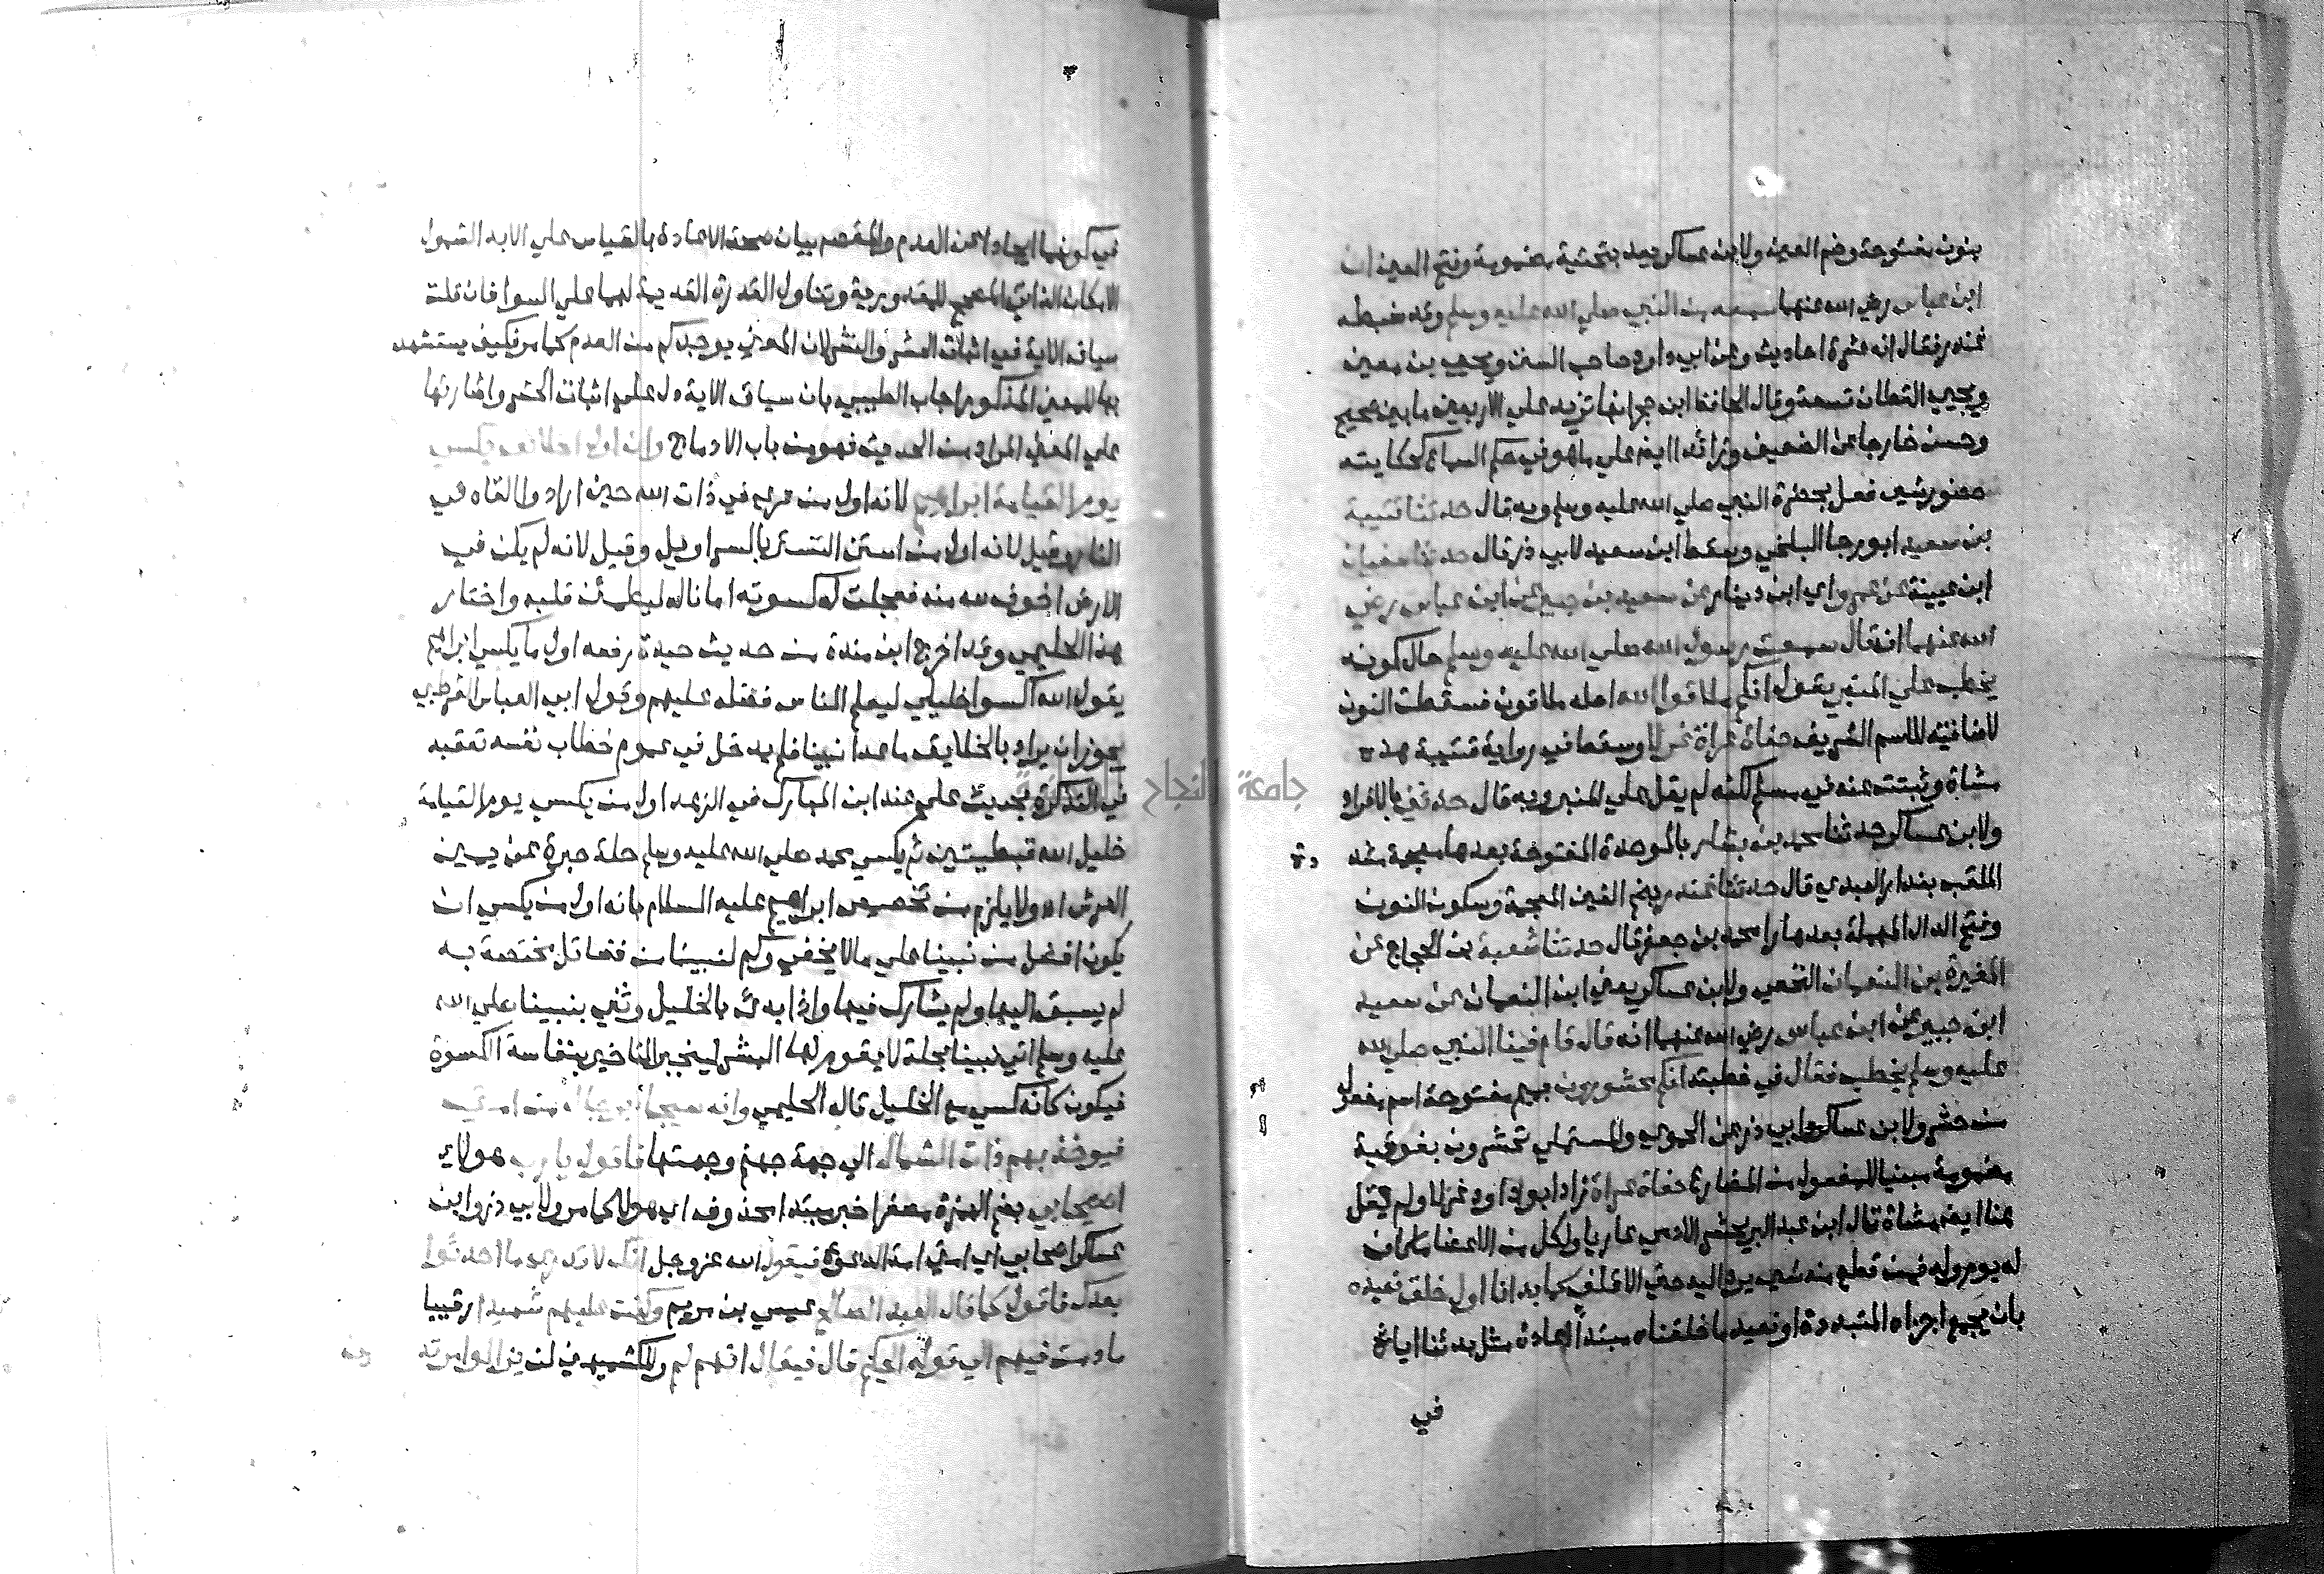 بنون مفتوحة وضم العين ولابن عساكر يعد بتحتية مضمومة وفتح العين ان
ابن عباس رضي الله عنهما سمعه من النبي صلي الله عليه وسلم وقد ضبطه
غندر فقال انه عشرة احاديث وعن ابي داود صاحب السنن ويحيي بن معين
ويحيي القطان تسعة وقال الحافظ ابن حجر انها تزيد علي الاربعين ما بين صحيح
وحسن خارجا عن الضعيف وزائدا ايضا علي ما هو في حكم السماع كحكايته
حضور شي فعل بحضرة النبي صلي الله عليه وسلم وبه قال حدثنا قتيبة
بن سعيد ابو رجا البلخي وسقط ابن سعيد لابي ذر قال حدثنا سفيان
ابن عيينة عن عمرو اي ابن دينار عن سعيد بن جبير عن ابن عباس رضي
الله عنهما انه قال سمعت رسول الله صلي الله عليه وسلم حال كونه
يخطب علي المنبر يقول انكم ملاقوا الله اصله ملاقون فسقطت النون
لاضافته للاسم الشريف حفاة عراة غرلا وسقط في رواية قتيبة هذه
مشاة وثبتت عنه في مسلم لكنه لم يقل علي المنبر وبه قال حدثني بالافراد
ولابن عساكر حدثنا محمد بن بشار بالموحدة المفتوحة بعدها معجمة مشد دة
الملقب بندار العبدي قال حدثنا غندر بضم الغين المعجمة وسكون النون
وفتح الدال المهملة بعدها را محمد بن جعفر قال حدثنا شعبة بن الحجاج عن
المغيرة بن النعمان النخعي ولابن عساكر يعني ابن النعمان عن سعيد
ابن جبير عن ابن عباس رضي الله عنهما انه قال قام فينا النبي صلي الله
عليه وسلم يخطب فقال في خطبته انكم محشورون بميم مفتوحة اسم مفعول
من حشر ولابن عساكر وابي ذر عن الحموي والمستملي تحشرون بفوقية
مضمومة مبنيا للمفعول من المضارع حفاة عراة زاد ابو داود غرلا ولم يقل
هنا ايضا مشاة قال ابن عبد البر يحشر الادمي عاريا ولكل من الاعضا ما كان
له يوم ولد فمن قطع منه شي يرد اليه حتي الاقلف كما بدانا اول خلق نعيده
بان يجمع اجزاه المتبددة او نعيد ما خلقناه مبتدأ اعادة مثل بدئنا اياه
في
في كونهما ايجادا عن العدم والمقصد بيان صحة الاعادة بالقياس علي الابد الشمول
الامكان الذاتي المصحح للمقدورية وتناول القدرة القديمة لهما علي السوا فان قلت
سياق الاية في اثبات الحشر والنشر لان المعني يوجدكم من العدم كما مر فكيف يستشهد
بها للمعني المذكور اجاب الطيبي بان سياق الاية دل علي اثبات الحشر واشارتها
علي المعني المراد من الحديث فهو من باب الادماج وان اول الخلائق يكسي
يوم القيامة ابراهيم لانه اول من عري في ذات الله حين ارادوا القاه في
النار وقيل لانه اول من استن التستر بالسراويل وقيل لانه لم يكن في
الارض اخوف لله منه فعجلت له كسوته امانا له ليطمئن قلبه واختار
هذا الحليمي وقد اخرج ابن مندة من حديث حيدة رفعه اول ما يكسي ابراهيم
يقول الله اكسوا خليلي ليعلم الناس فضله عليهم وقول ابي العباس القرطبي
يجوز ان يراد بالخلايق ما عدا نبينا فلم يدخل في عموم خطاب نفسه تعقبه
في التذكرة بحديث علي عند ابن المبارك في الزهد اول من يكسي يوم القيامة
خليل الله قبطيتين ثم يكسي محمد صلي الله عليه وسلم حلة حبرة عن يمين
العرش اه ولا يلزم من تخصيص ابراهيم عليه السلام بانه اول من يكسي ان
يكون افضل من نبينا علي ما لا يخفي وكم لنبينا من فضائل مختصة به
لم يسبق اليها ولم يشارك فيها واذا بدئ بالخليل وثني بنبينا صلي الله
عليه وسلم اتي نبينا بحلة لا يقوم لها البشر لينجبر التاخير بنفاسة الكسوة
فيكون كانه كسي مع الخليل قاله الحليمي وانه سيجاء برجال من امتي
فيوخذ بهم ذات الشمال الي جهة جهنم وجهتها فاقول يا رب هولاء
اصيحابي بضم الهمزة مصغرا خبر مبتدا محذوف اي هولاء ولابي ذر وابن
عساكر اصحابي اي امتي امة الدعوة فيقول الله عز وجل انك لا تدري ما احدثوا
بعدك فاقول كما قال العبد الصالح عيسي بن مريم وكنت عليهم شهيدا رقيبا
ما دمت فيهم الي قوله الحكيم قال فيقال انهم لم وللكشميهني لن يزالوا مرتد